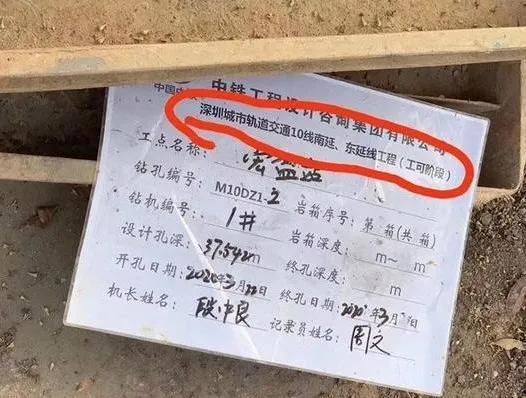 中铁工程设计咨询集团有限公司
中国中
深圳城市轨道交通10线南延、东延线工程（工可阶段）
工点名称：
钻孔编号：M10DZ1-2 岩箱序号：第 箱(共 箱)
钻机编号：1# 岩箱深度： m～ m
设计孔深：37.542m 终孔深度： m
开孔日期：2020年3月22日 终孔日期：2020年3月 日
机长姓名： 记录员姓名：周文